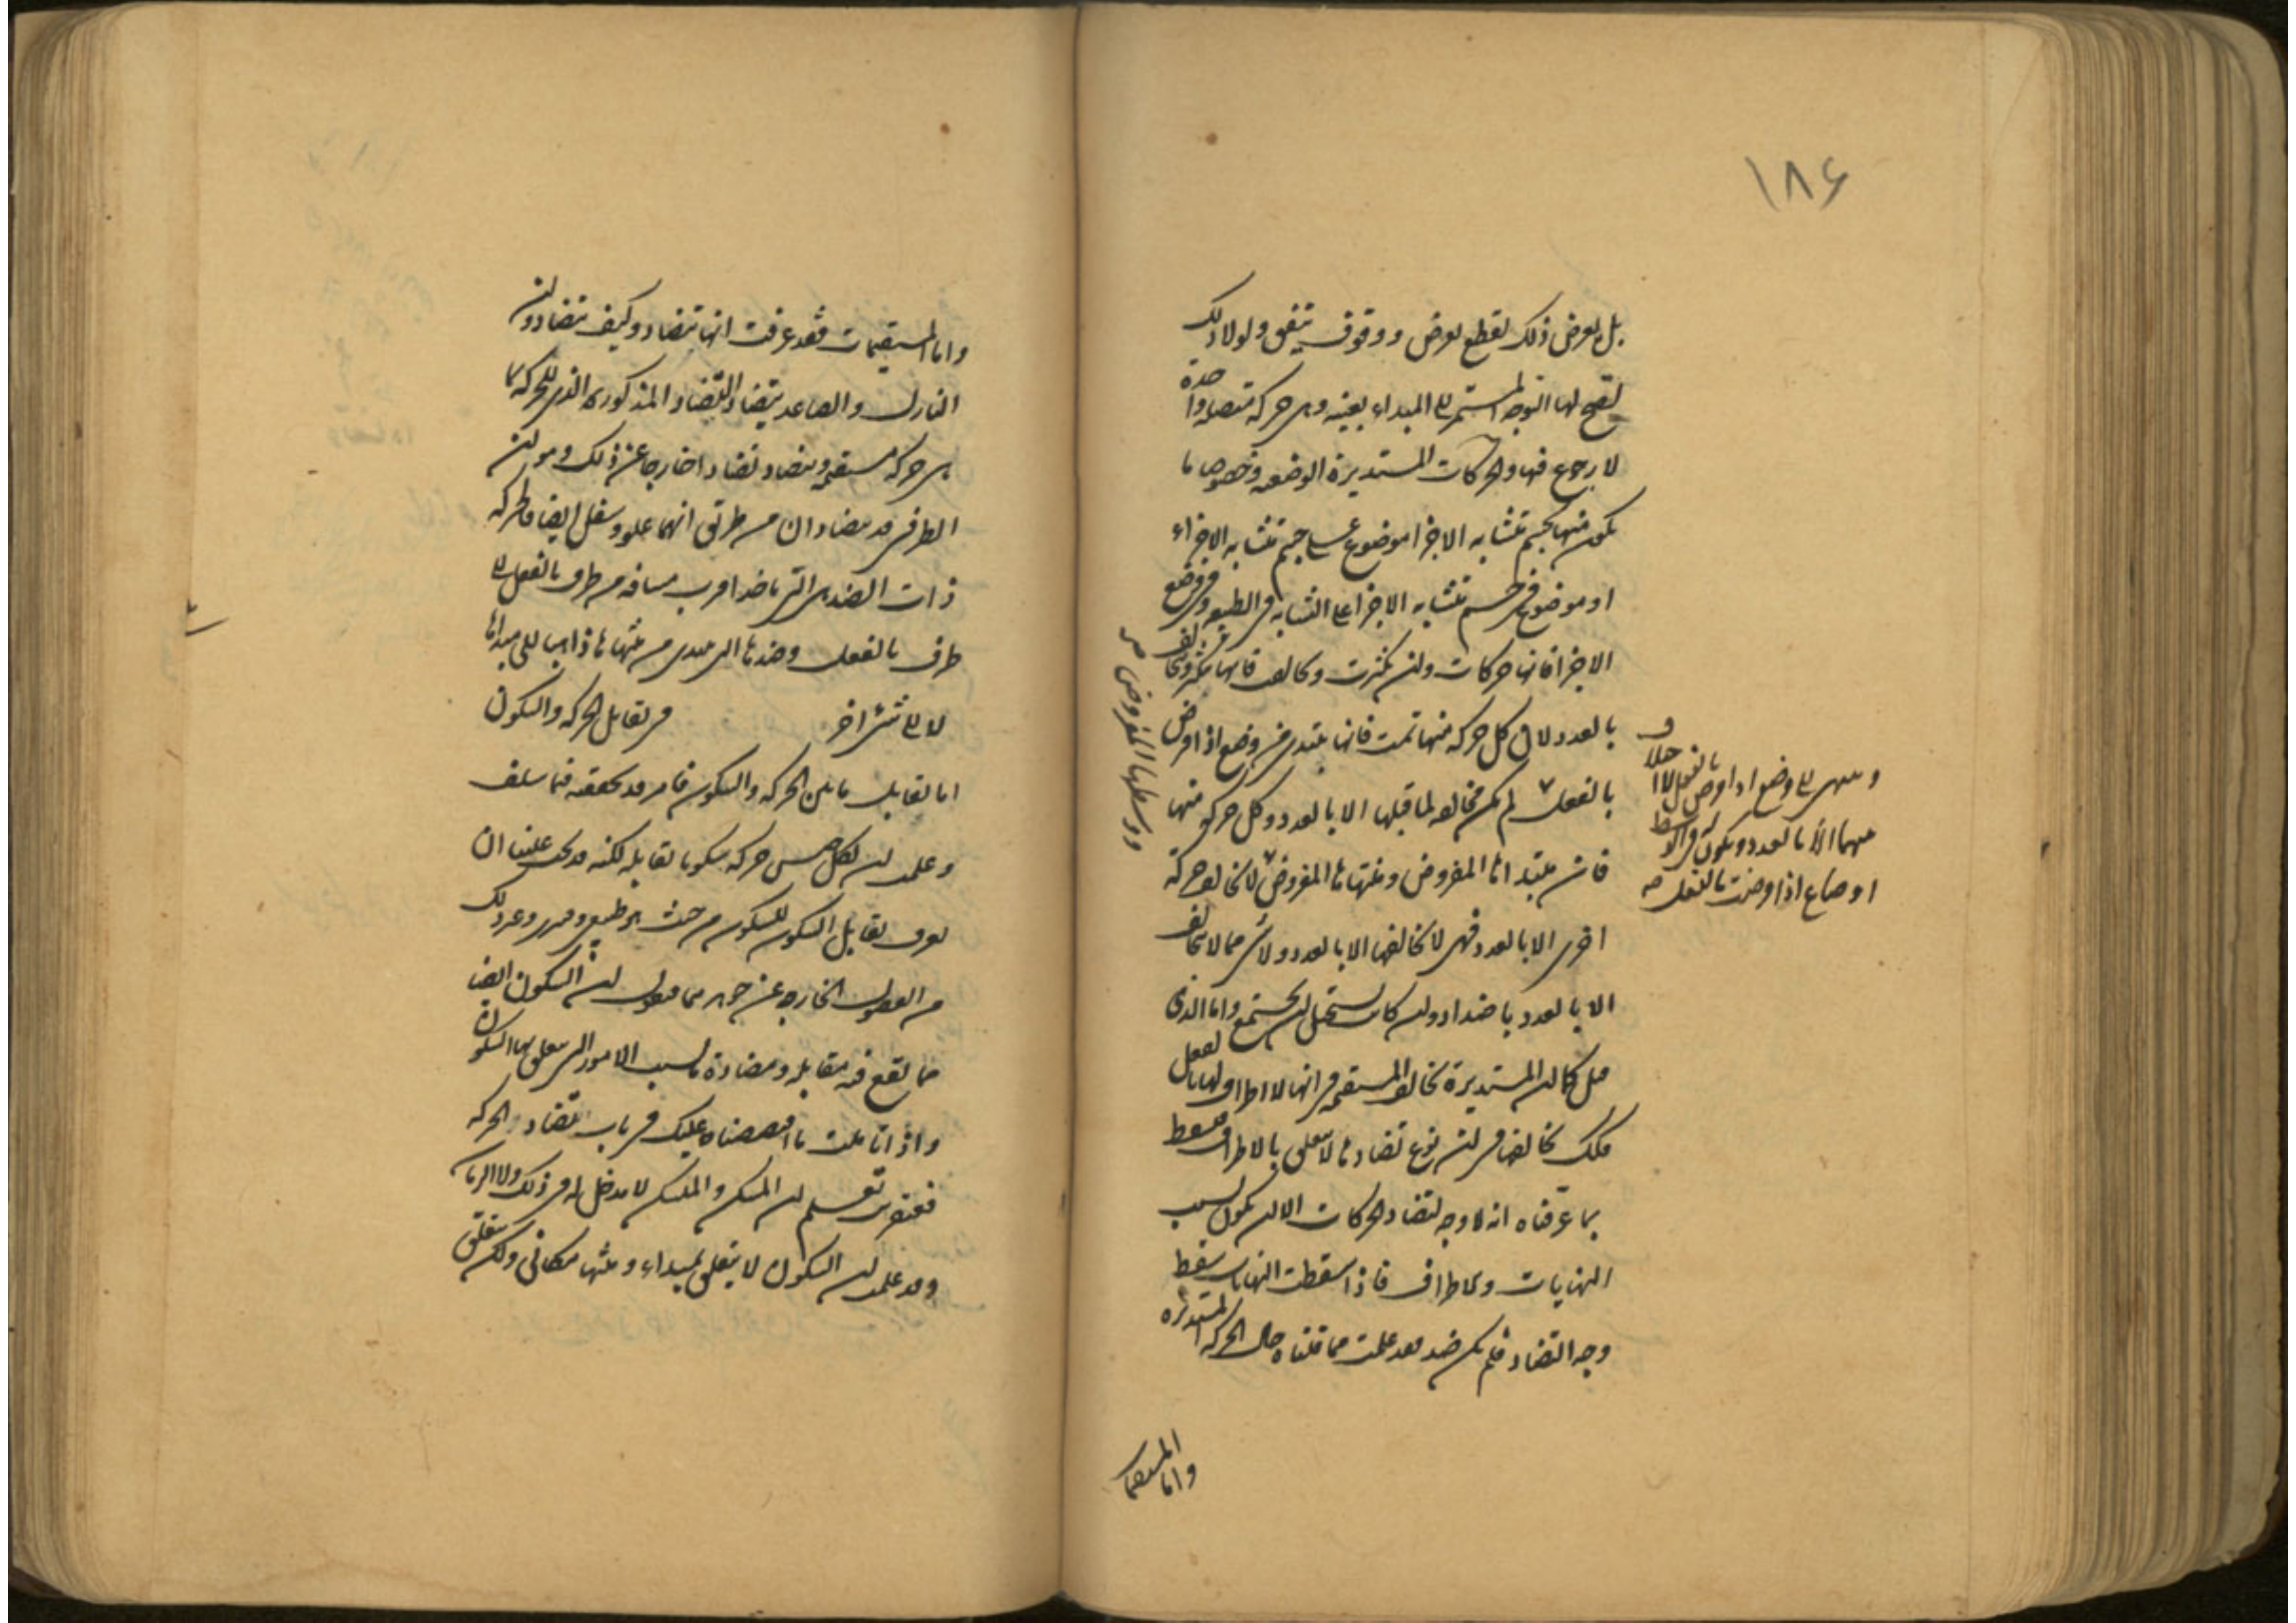 ١٨۶
بل يعرض ذلك لقطع يعرض ووقوف يتفق ولولا ذلك
لصح لها التوجه المستمر الى المبداء بعينه وهى حركة متصلة واحدة
لا رجوع فيها والحركات المستديرة الوضعيه وخصوصا ما
يكون منها لجسم متشابه الاجزا موضوع على جسم متشابه الاجزاء
او موضوع فى جسم متشابه الاجزا على التشابه فى الطبع وفى وضع
الاجزا فانها حركات وان كثرت وتخالف فانها تكثر وتخالف
بالعدد لان كل حركه منها تمت فانها تبتدى من وضع اذا فرض
بالفعل لم يكن مخالفه لما قبلها الا بالعدد وكل حركه منها
فان مبتداها المفروض ومنتهاها المفروض لا يخالف حركة
اخرى الا بالعدد فهى لا تخالفها الا بالعدد ولا شى مما لا يخالف
الا بالعدد باضداد وان كان يستحيل ان يجتمع واما الذى
قيل كما ان المستديرة تخالف المستقيمه فى انها لا اطراف لها بالفعل
فكذلك تخالفها فى ان نوع تضادها لا يتعلق بالاطراف فيسقط
بما عرفناه انه لا وجه لتضاد الحركات الا ان يكون بسبب
النهايات والاطراف فاذا سقطت النهايات سقط
وجه التضاد فلم يكن ضد فقد علمت مما قلناه حال الحركة المستديره
وينتهى الى وضع اذا فرض بالفعل لا اختلاف
فيهما الا بالعدد ويكون فى الوسط
اوضاع اذا فرضت بالفعل صح
ووسطها المفروض صح
واما المستقيمات
واما المستقيمات فقد عرفت انها تتضاد وكيف تتضاد وان
النازل والصاعد يتضاد التضاد المذكور الذى للحركه بما
هى حركه مستقيمه ويتضاد تضادا خارجا عن ذلك وهو ان
الطرفين قد يتضادان من طريق انهما علو وسفل ايضا فالحركه
ذات الضد هى التى ياخذ اقرب مسافه من طرف بالفعل الى
طرف بالفعل وضدها التى تبتدى من منتهاها ذاهبا الى مبداها
لا الى شئ اخر فى تقابل الحركه والسكون
اما تقابل ما بين الحركه والسكون فامر قد تحققته فيما سلف
وعلمت ان لكل جنس حركه سكونا تقابله لكنه قد يجب علينا ان
نعرف تقابل السكون للسكون من حيث هو طبيعى وقسرى وغير ذلك
من الفصول الخارجه عن جوهره مما فنقول ان السكون ايضا
مما تقع فيه مقابله ومضادة بسبب الامور التى يتعلق بها السكون
واذا تاملت ما اقتصصناه عليك فى باب تضاد الحركه
فعن قريب تعلم ان المسكن والمتسكن لا مدخل له فى ذلك ولا الزمان
وقد علمت ان السكون لا يتعلق بمبداء ومنتها مكانى ولكن يتعلق